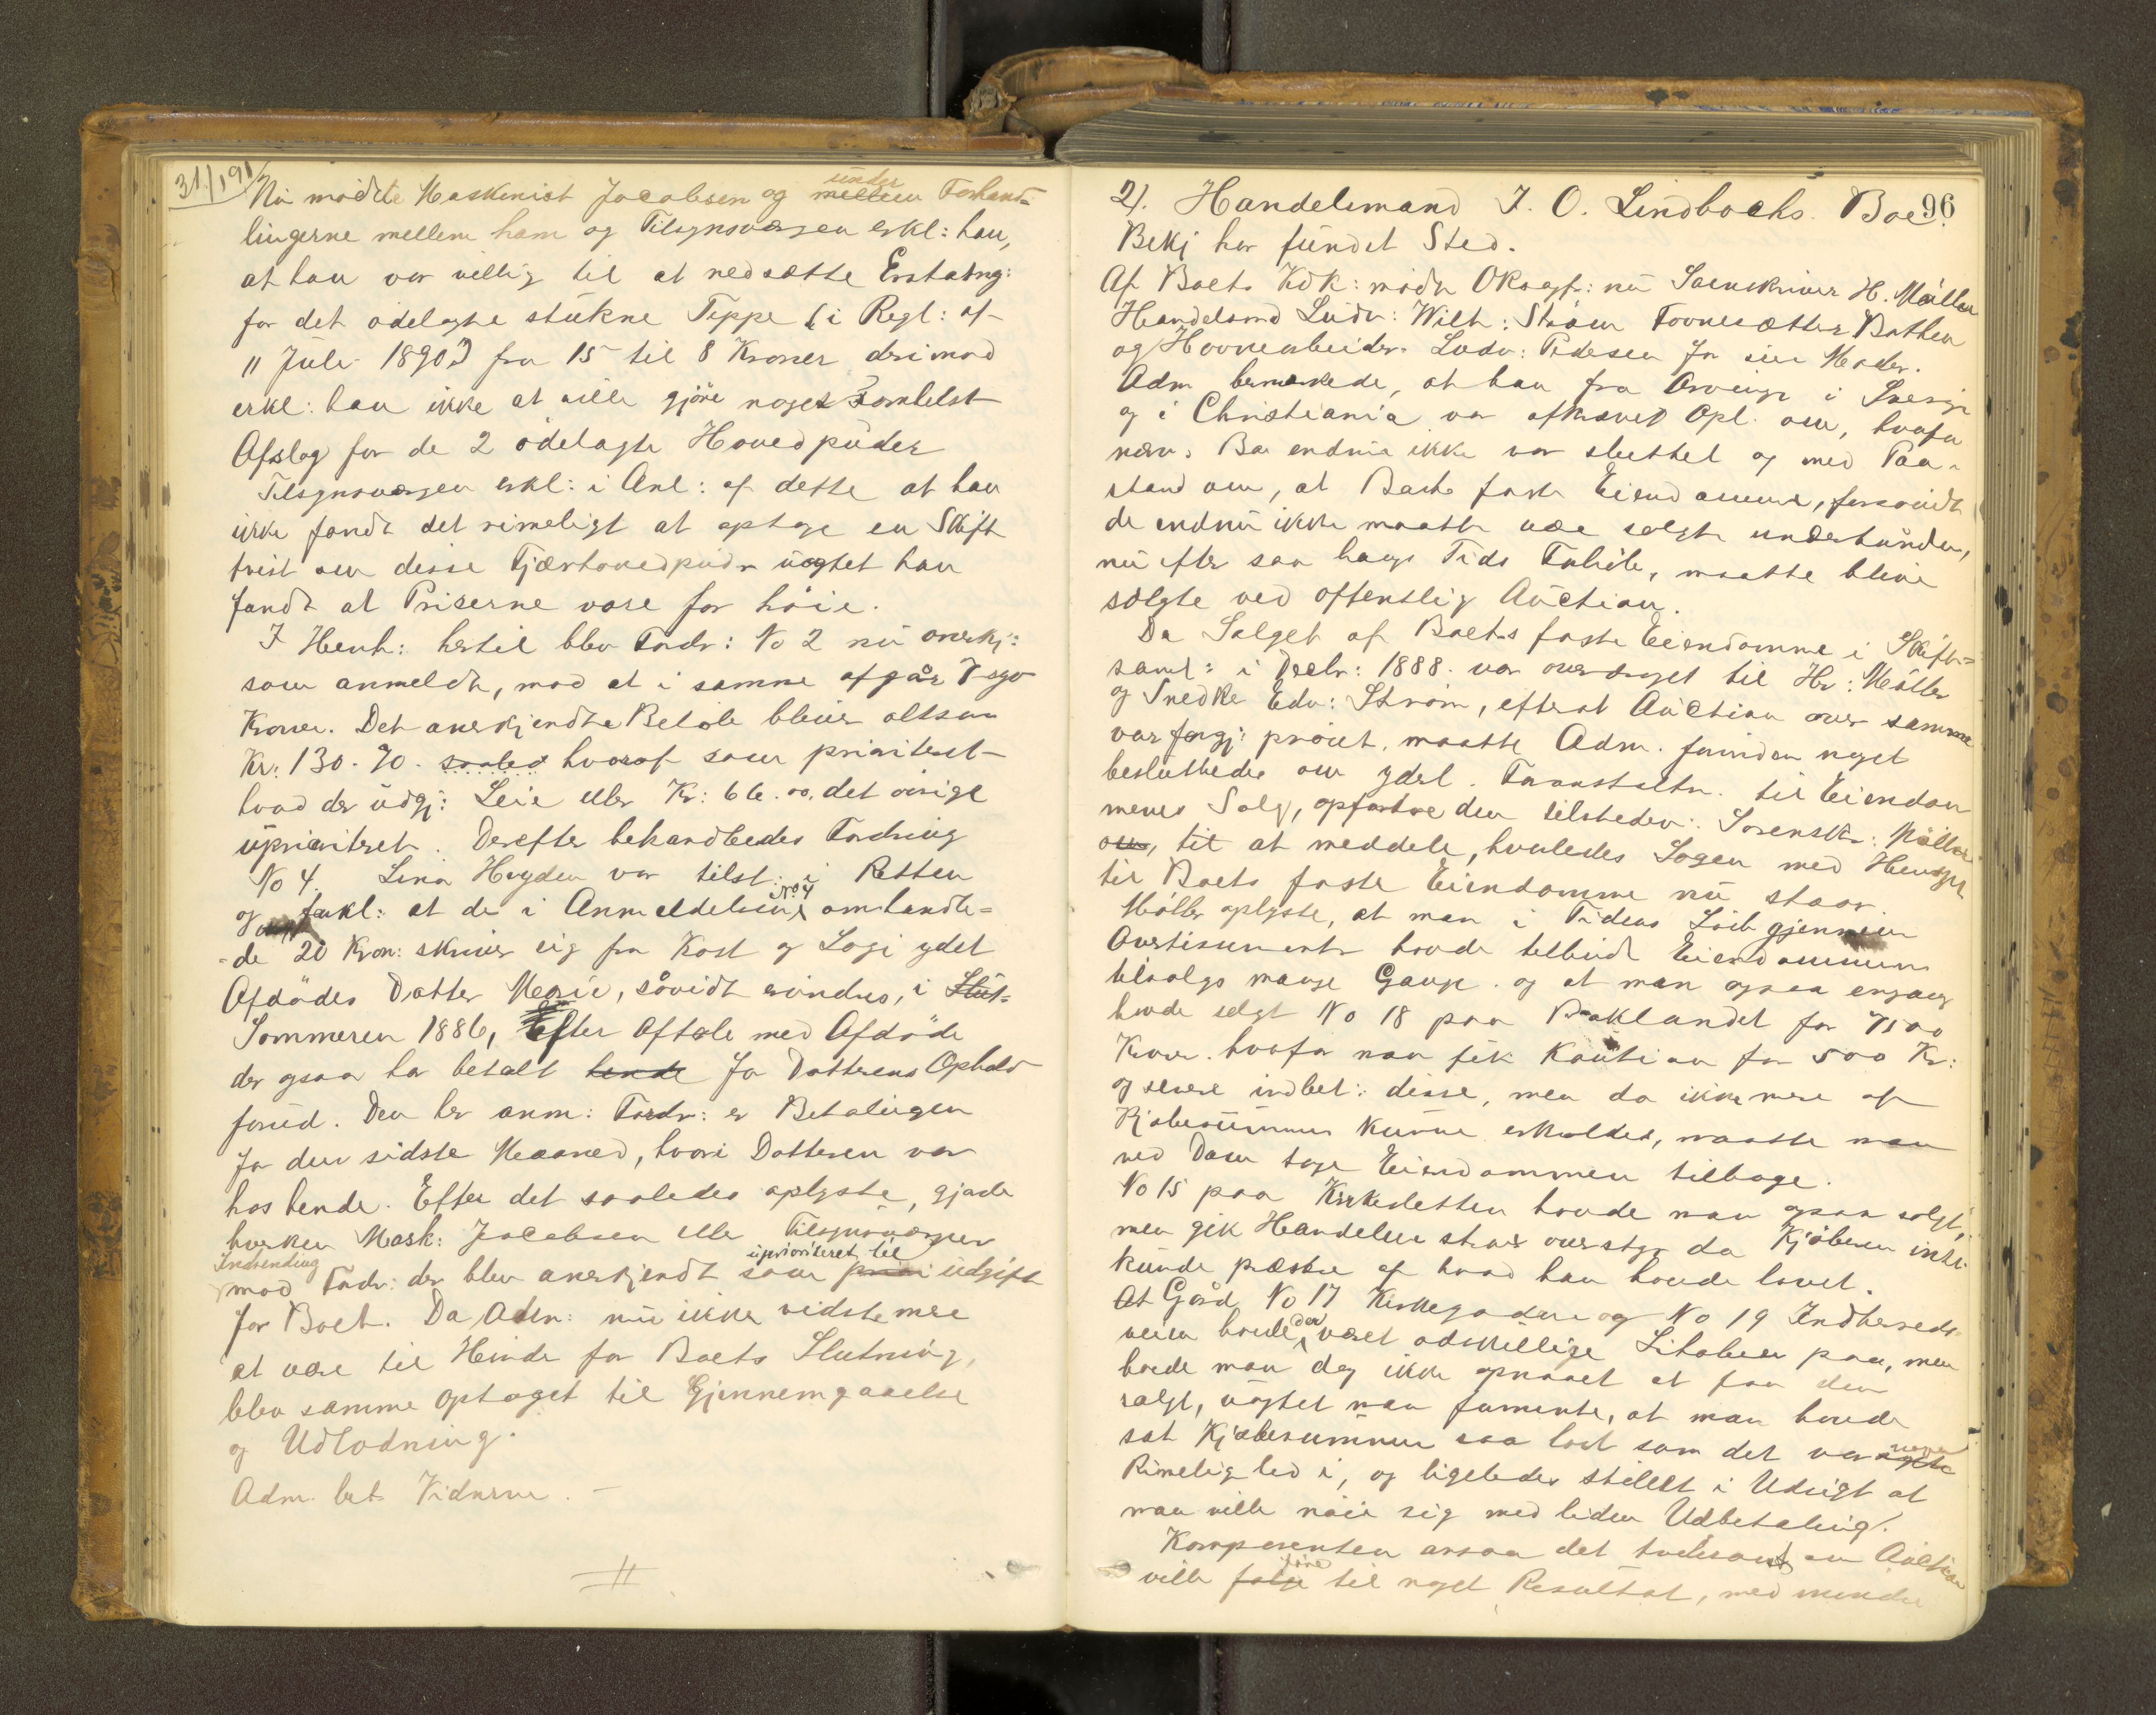 31/1 91
Nu mödte Maskinist Jacobsen og under mellem Forhand-
lingerne mellem ham og Tilsynsværgen erkl: han,
at han var villig til at nedsætte Erstatng:
for det ödelagte stükne Teppe (i Regl: af
11 Juli 1890) fra 15 til 8 Kroner derimod
erkl: han ikke at ville gjöre noget somhelst
Afslag for de 2 ödelagte Hovedpuder
Tilsynsværgen erkl: i Anl: af dette at han
ikke fandt det rimeligt at optage en Skift
tvist om disse Fjærhovedpudr uagtet han
fandt at Priserne vare for höie.
I Henh: hertil blev Fordr: No 2 nu anerkj:
som anmeldt, mod at i samme afgår 7 syv
Kroner. Det anerkjendte Belöb bliver altsaa
Kr: 130.70. saaled hvoraf som prioriteret
hvad der udgj: Leie eller Kr: 66.00. det övrige
uprioritert. Derefter behandledes Fordring
No 4. Lina Hegden var tilst: i Retten
og forkl: at de i Anmeldelsen No 4 omhandle-
de 20 Kron: skriver sig fra Kost og Logi ydet
Afdödes Datter Marie, såvidt erindres, i Slut-
Sommeren 1886, Efter Aftale med Afdöde
der ogsaa har betalt hende for Datterens Ophold
forud. Den her anm: Fordr: er Betalingen
for den sidste Maaned, hvori Datteren var
hos hende. Efter det saaledes oplyste, gjorde
hverken Mask: Jacobsen eller Tilsynsværgen
Indvending uprioriteret til
mod Fordr: der blev anerkjendt som prior udgift
for Boet. Da Adm: nu ikke vidste mere
at være til Hinder for Boets Slutning,
blev samme optaget til Gjennemgaaelse
og Udlodning.
Adm. bet. Vidnerne. —
2). Handelsmand J. O. Lindbocks Boe. 96
Bekj har fundet Sted.
Af Boets Kdk: mödte OKsagf: nu Sorenskriver H. Möller
Handelsmd Ludv: Wilh: Ström Tovnesætter Bathen
og Havnearbeider Ludv: Pedersen for sin Moder.
Adm bemærkede, at han fra Arvinge i Sverige
og i Christiania var afkrævet Opl. om, hvorfor
nærv. Bo endnu ikke var sluttet og med Paa-
stand om, at Boets faste Eiendomme, forsaavidt
de endnu ikke maatte være solgte underhaanden,
nu efter saa lang Tids Forløb, maatte blive
solgte ved offentlig Auction.
Da Salget af Boets faste Eiendomme i Skifte-
saml: i Decbr: 1888. var overdraget til Hr: Möller
og Snedker Edv: Ström, efterat Auction over samme
var forgj: prövet, maatte Adm. forinden noget
besluttedes om yderl. Foranstaltn. til Eiendom
menes Salg, opfordre den tilstedev: Sorenskr: Möller
om, til at meddele, hvorledes Sagen med Hensyn
til Boets faste Eiendomme nu staar.
Möller oplyste, at man i Tidens Löb gjennem
Avertissementer havde tilbudt Eiendommene
tilsalgs mange Gange. og at man ogsaa engang
havde solgt No 18 paa Baklandet for 7500
Kroner. hvorfor man fik Kaution for 500 Kr:
og senere indbet: disse, men da ikke mere af
Kjöbesummen kunne erholdes, maatte man
ved Dom tage Eiendommen tilbage.
No 15 paa Kirkesletten havde man ogsaa solgt,
men gik Handelen strax overstyr da Kjöberen inkt.
kunde præstere af hvad han havde lovet.
At Gård No 17 Kirkegaden og No 19 Indherreds-
veien havde der været adskillige Lihabere paa, men
havde man dog ikke opnaaet at faa dem
solgt, uagtet man formente, at man havde
sat Kjöbesummen saa lavt som det var nogen
Rimelighed i, og ligeledes stillet i Udsigt at
man ville nöie sig med liden Udbetaling.
Komparenten ansaa det tvilsomt om Auktion
ville følge före til noget Resultat, med mindre